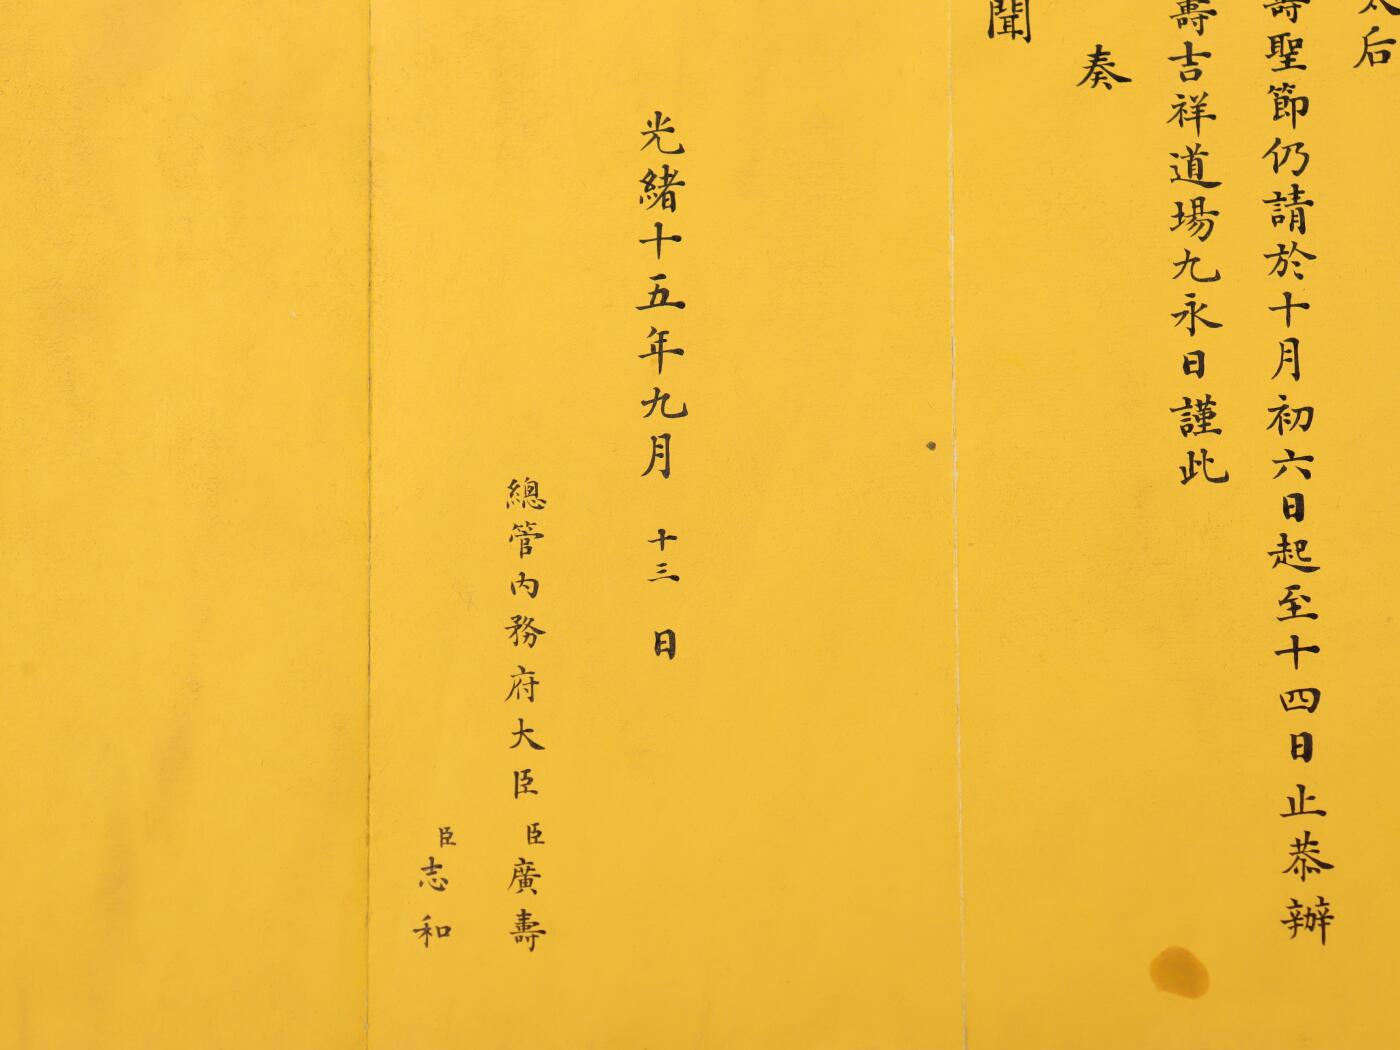 太后
壽聖節仍請於十月初六日起至十四日止恭辦
壽吉祥道場九永日謹此
奏
聞
光緒十五年九月 十三 日
總管內務府大臣臣廣壽
臣志和